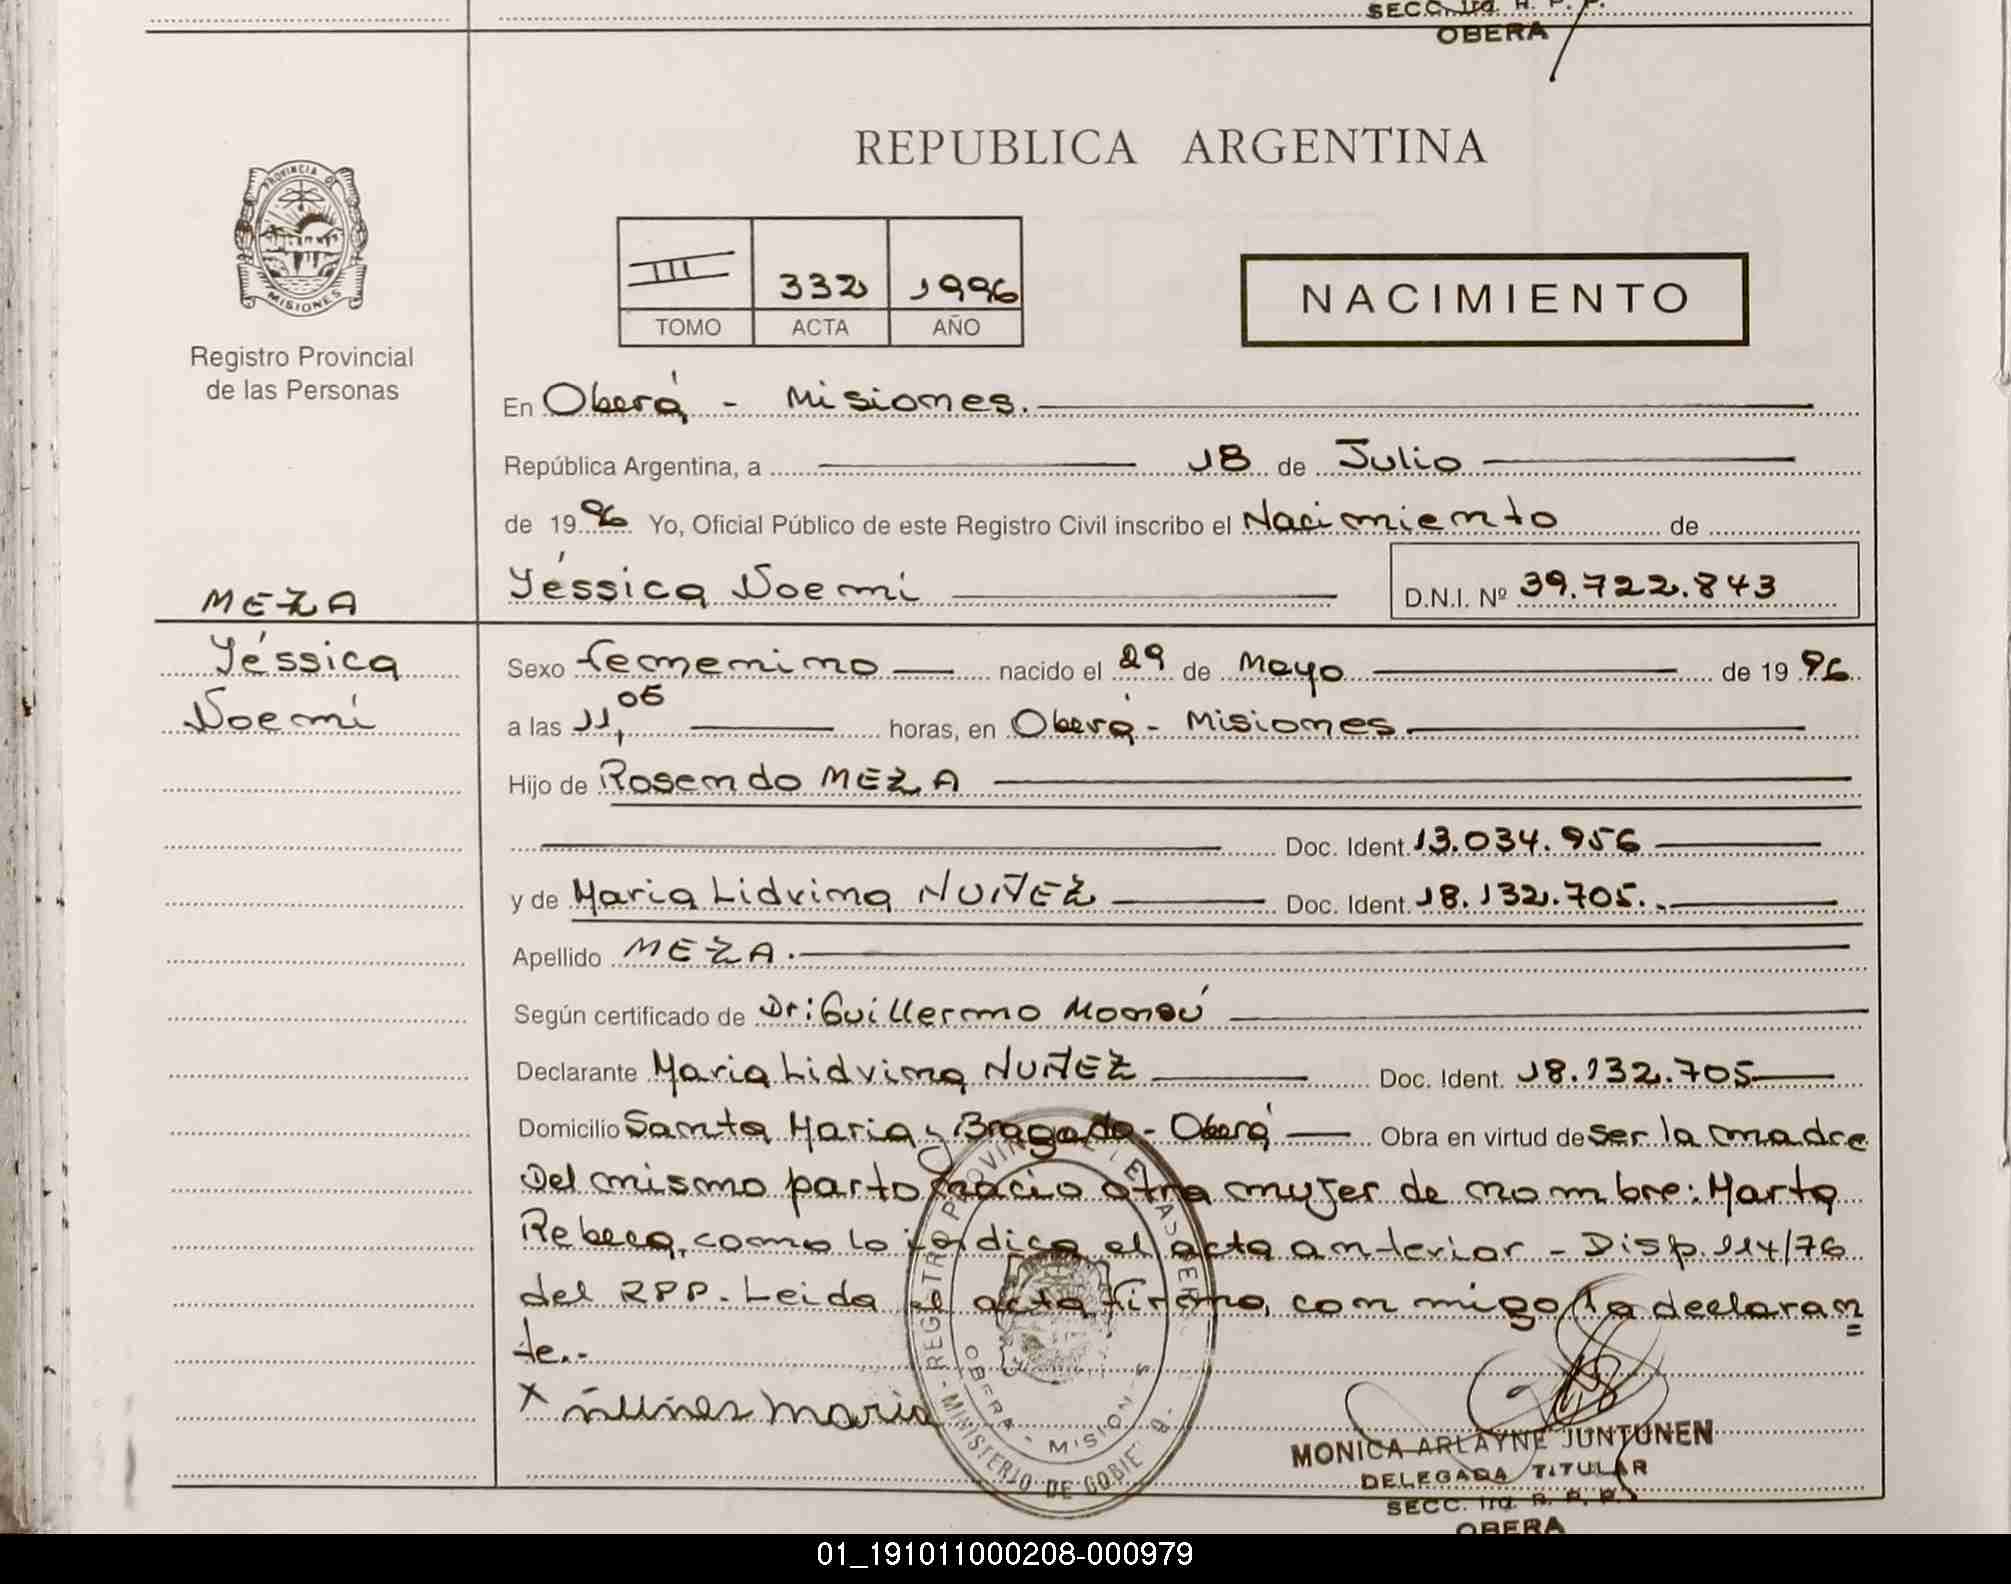 SECC. 1ra. R. P. P.
OBERA
PROVINCIA DE
MISIONES
Registro Provincial
de las Personas
REPUBLICA ARGENTINA
III 332 1996
TOMO ACTA AÑO
NACIMIENTO
En Oberá - Misiones.
República Argentina, a 18 de Julio
de 1996 Yo, Oficial Público de este Registro Civil inscribo el Nacimiento de
Yéssica Noemí D.N.I. Nº 39.722.843
MEZA
Yéssica
Noemí
Sexo femenino nacido el 29 de Mayo de 1996
a las 11,05 horas, en Oberá - Misiones
Hijo de Rosendo MEZA
Doc. Ident. 13.034.956
y de Maria Lidvina NUÑEZ Doc. Ident. 18.132.705.-
Apellido MEZA.
Según certificado de Dr: Guillermo
Declarante Maria Lidvina NUÑEZ Doc. Ident. 18.132.705
Domicilio Santa Maria y Bragado - Oberá Obra en virtud de ser la madre
Del mismo parto nacio otra mujer de nombre: Marta
Rebeca, como lo indica el acta anterior - Disp. 114/76
del RPP. Leida el acta firma, con migo la declaran
te.-
x ñuñez maria
REGISTRO PROVINCIAL DE LAS PERS
MINISTERIO DE GOBIE
OBERA - MISIONES
MONICA ARLAYNE JUNTUNEN
DELEGADA TITULAR
SECC. 1ra. R. P. P.
OBERA
01_191011000208-000979